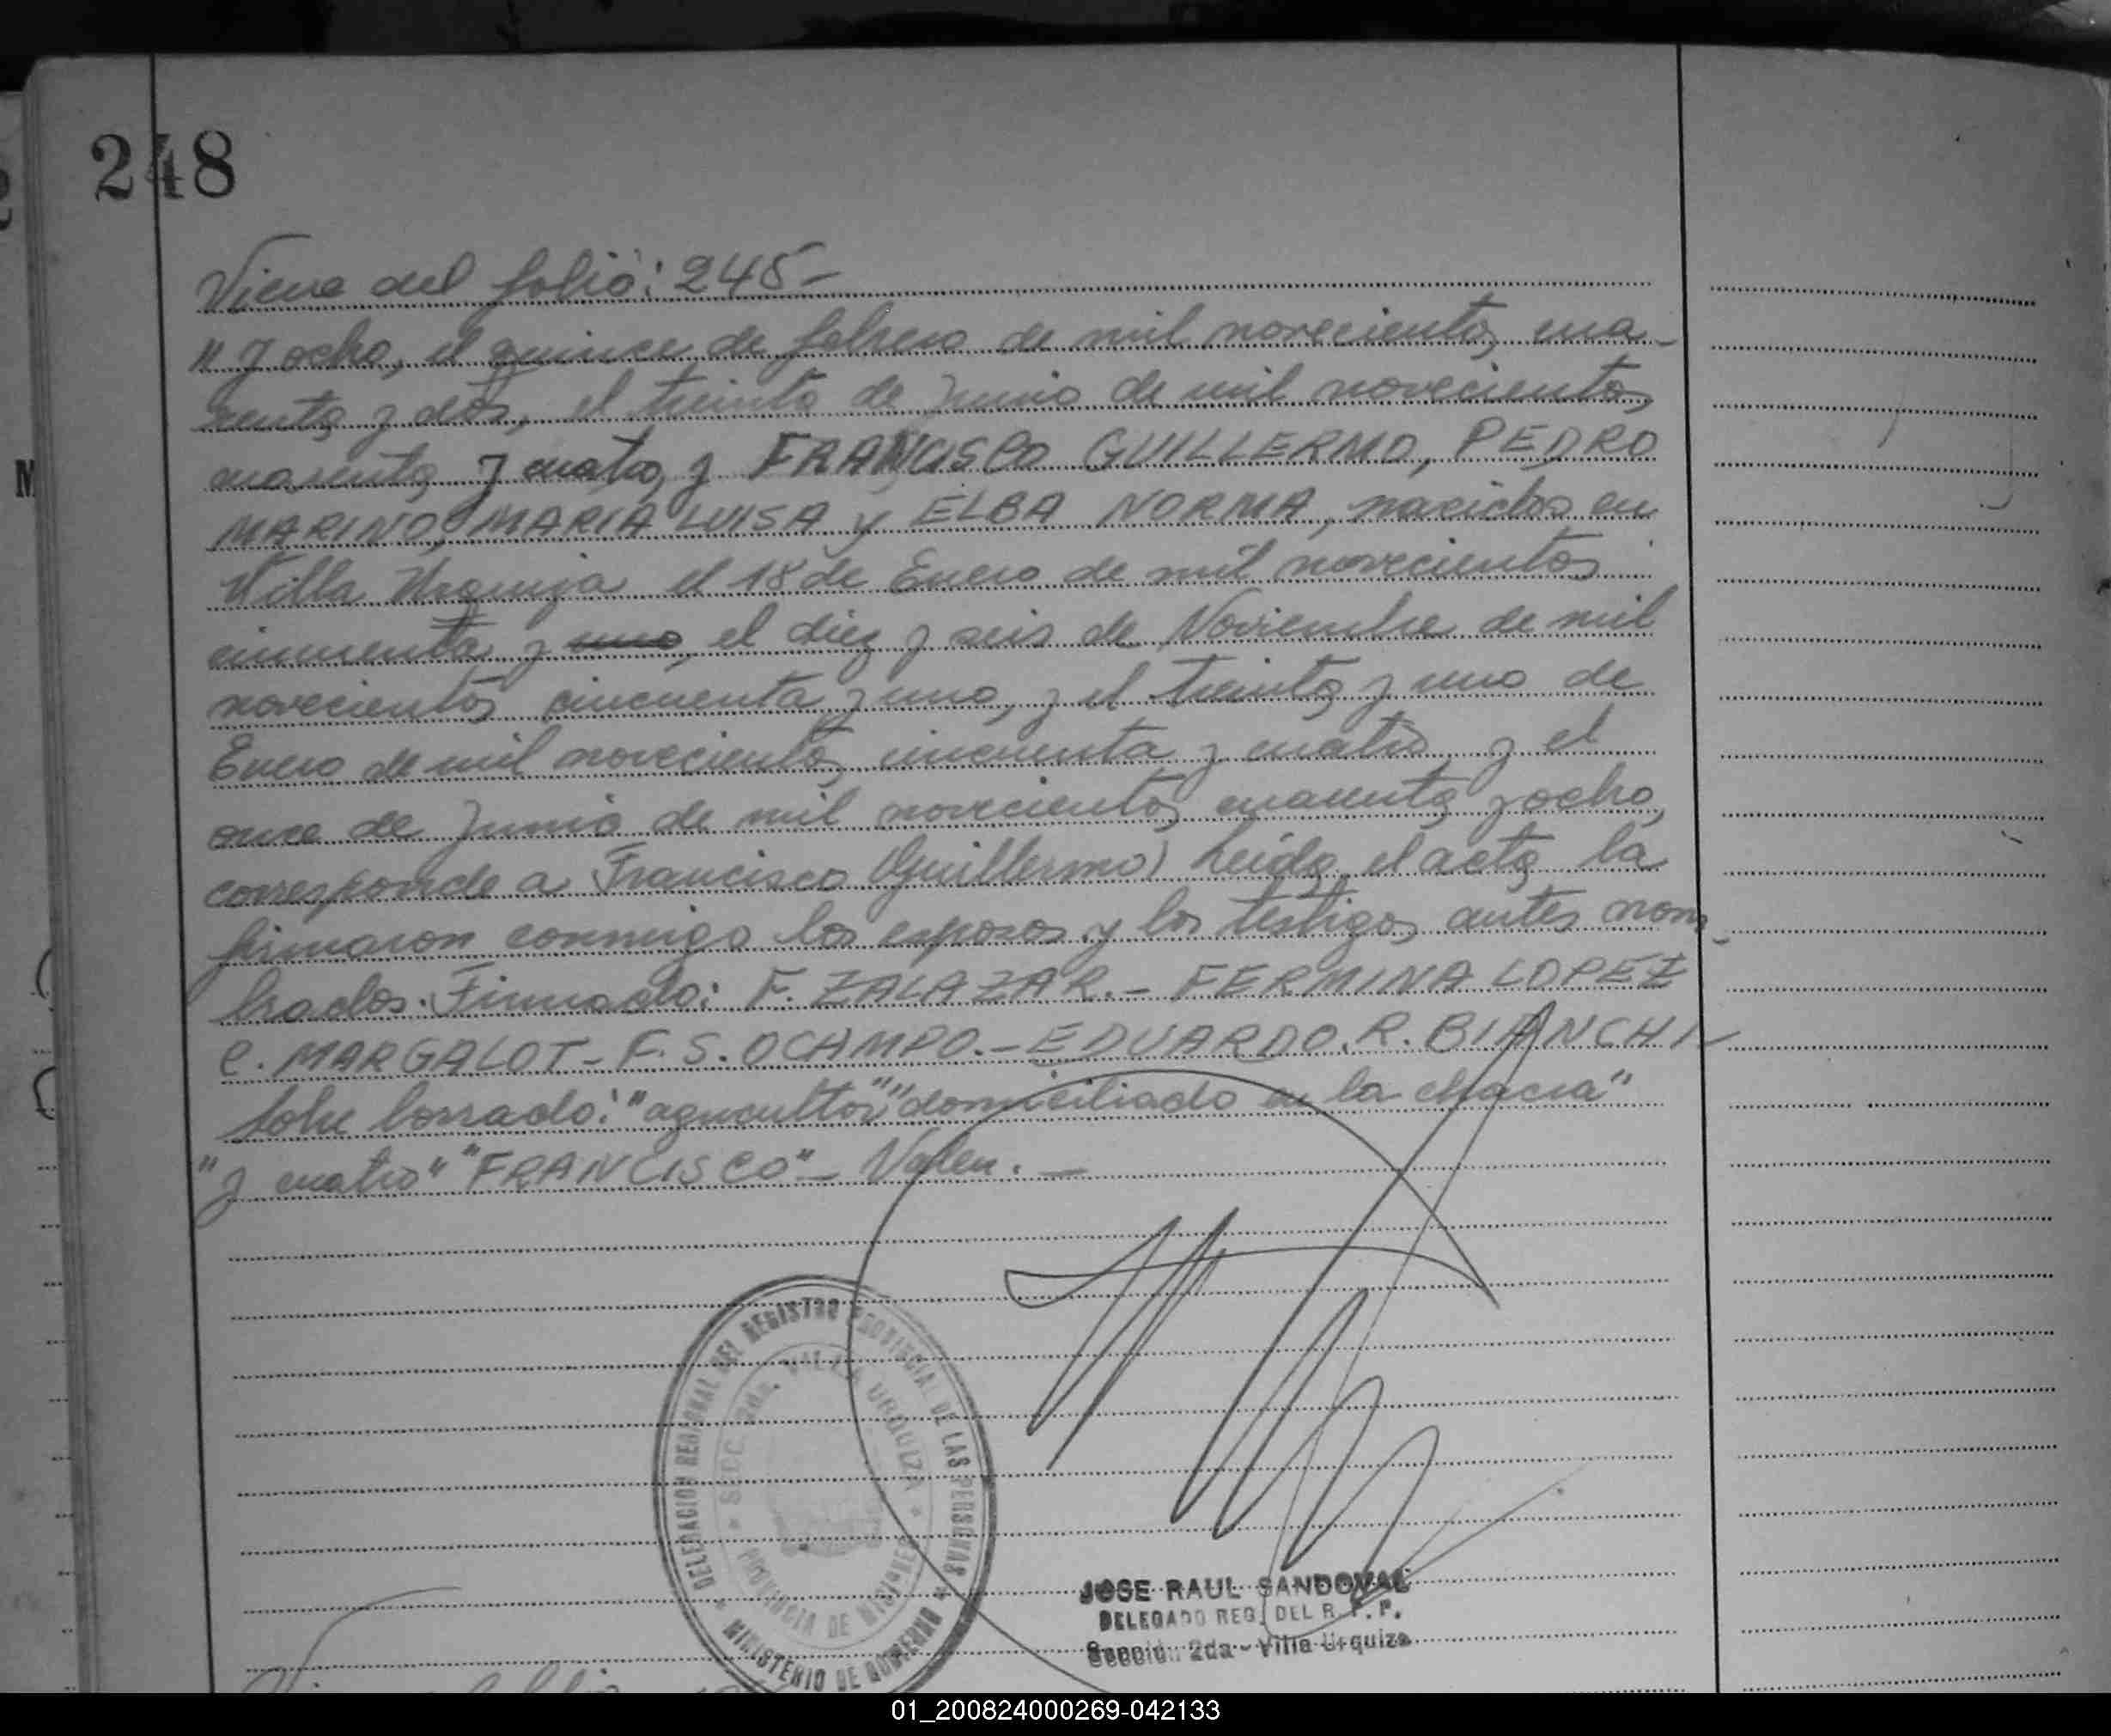 248
Viene del folio: 245-
" y ocho, el quince de febrero de mil novecientos cua-
renta y dos, el treinta de Junio de mil novecientos
cuarenta y cuatro, y FRANCISCO GUILLERMO, PEDRO
MARINO, MARIA LUISA y ELBA NORMA, nacidos en
Villa Urquiza el 18 de Enero de mil novecientos
cincuenta y uno, el diez y seis de Noviembre de mil
novecientos cincuenta y uno, y el treinta y uno de
Enero de mil novecientos cincuenta y cuatro y el
once de Junio de mil novecientos cuarenta y ocho,
corresponde a Francisco Guillermo) Leída el acta la
firmaron conmigo los esposos y los testigos antes nom-
brados. Firmado: F. ZALAZAR.- FERMINA LOPEZ
C. MARGALOT- F. S. OCAMPO.- EDUARDO. R. BIANCHI-
Sobre borrado: "agricultor" "domiciliado en la chacra"
"y cuatro" "FRANCISCO"- Valen.-
DELEGACION REGIONAL DEL REGISTRO PROVINCIAL DE LAS PERSONAS
SECC. 2da. VILLA URQUIZA
PROVINCIA DE MISIONES
MINISTERIO DE GOBIERNO
JOSE RAUL SANDOVAL
DELEGADO REG. DEL R. P. P.
Sección 2da - Villa Urquiza
01_200824000269-042133